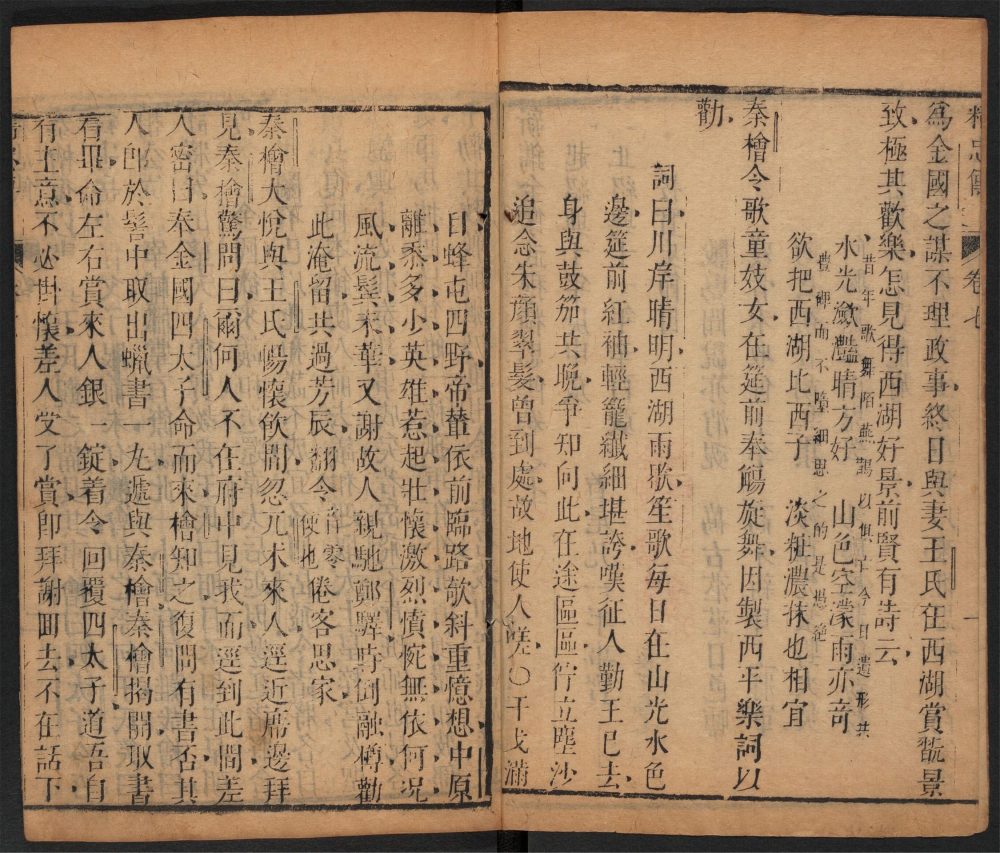 精忠傳 卷七 一
爲金國之謀不理政事終日與妻王氏在西湖賞翫景
致極其歡樂怎見得西湖好景前賢有詩云
昔年歌舞陌燕鵲以俱亡今日遺形共
水光瀲灧晴方好 山色空濛雨亦奇
豊鄉而不墮細思之的是思絕
欲把西湖比西子 淡粧濃抹也相宜
秦檜令歌童妓女在筵前奉觴旋舞因製西平樂詞以
勸
詞曰川岸晴明西湖雨歇笙歌每日在山光水色
邊筵前紅袖輕籠纖細堪誇嘆征人勤王已去
身與鼓笳共晚爭知向此在途區區佇立塵沙
追念朱顏翠髮曾到處故地使人嗟○干戈滿
目蜂屯四野帝輦依前臨路欹斜重憶想中原
離黍多少英雄惹起壯懷激烈憤惋無依何况
風流鬂未華又謝故人親馳鄭驛時倒融樽勸
此淹留共過芳辰翻令音零使也倦客思家
秦檜大悅與王氏暢懷飲間忽兀朮來人逕近席邊拜
見秦檜驚問曰爾何人不在府中見我而逕到此間差
人密曰奉金國四太子命而來檜知之復問有書否其
人即於髻中取出蠟書一丸遞與秦檜秦檜揭開取書
看畢命左右賞來人銀一錠着令回覆四太子道吾自
有主意不必掛懷差人受了賞即拜謝回去不在話下